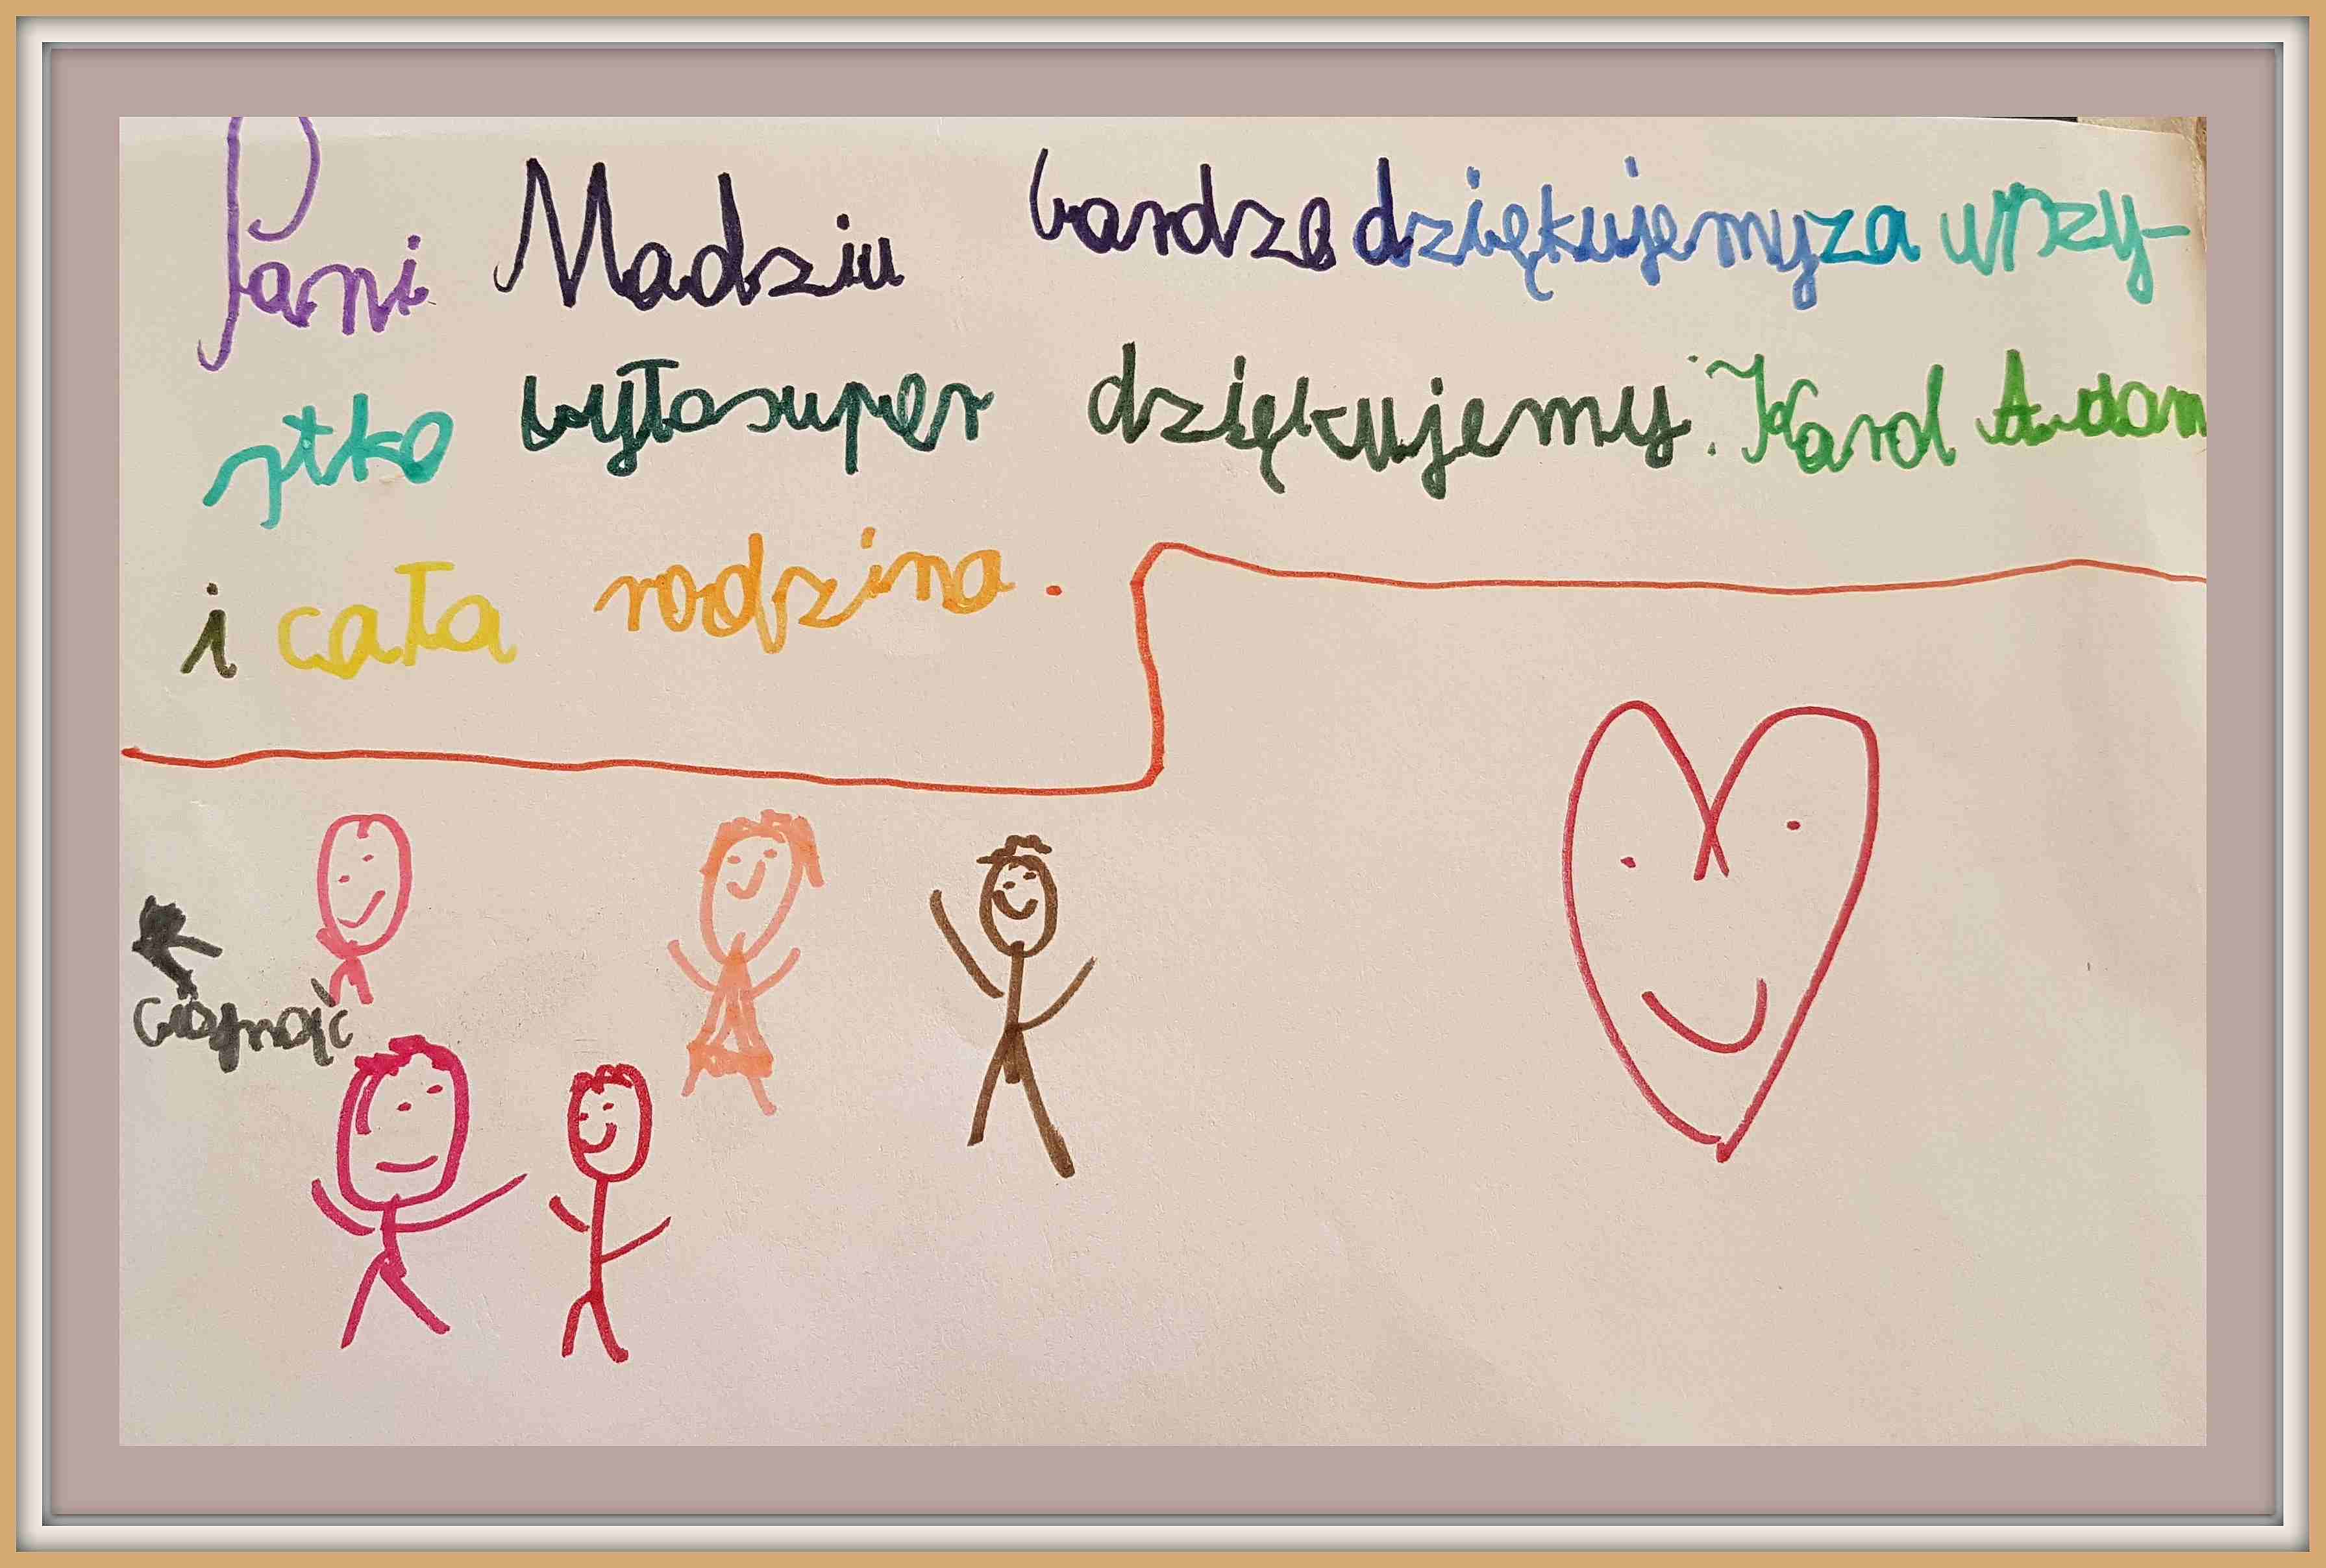 Pani Madziu bardzo dziękujemy za wszy-
stko było super dziękujemy. Karol Adam
i cała rodzina.